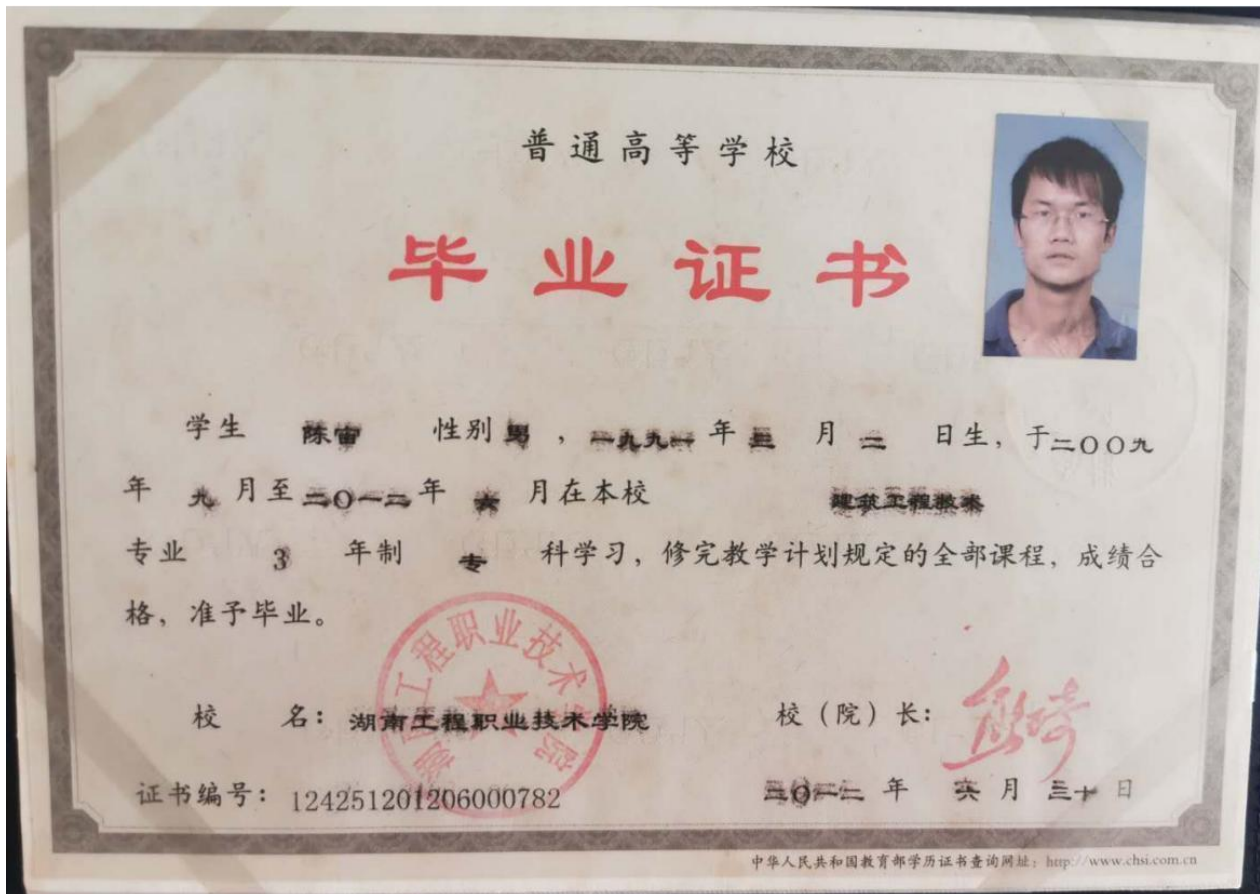 普通高等学校
毕业证书
学生 陈宙 性别 男 ，一九九一 年 三 月 二 日生，于二〇〇九
年 九 月至 二〇一二 年 六 月在本校 建筑工程技术
专业 3 年制 专 科学习，修完教学计划规定的全部课程，成绩合
格，准予毕业。
校 名：湖南工程职业技术学院 校（院）长：
湖南工程职业技术学院
证书编号：124251201206000782 二〇一二 年 六 月 三十 日
中华人民共和国教育部学历证书查询网址：http://www.chsi.com.cn